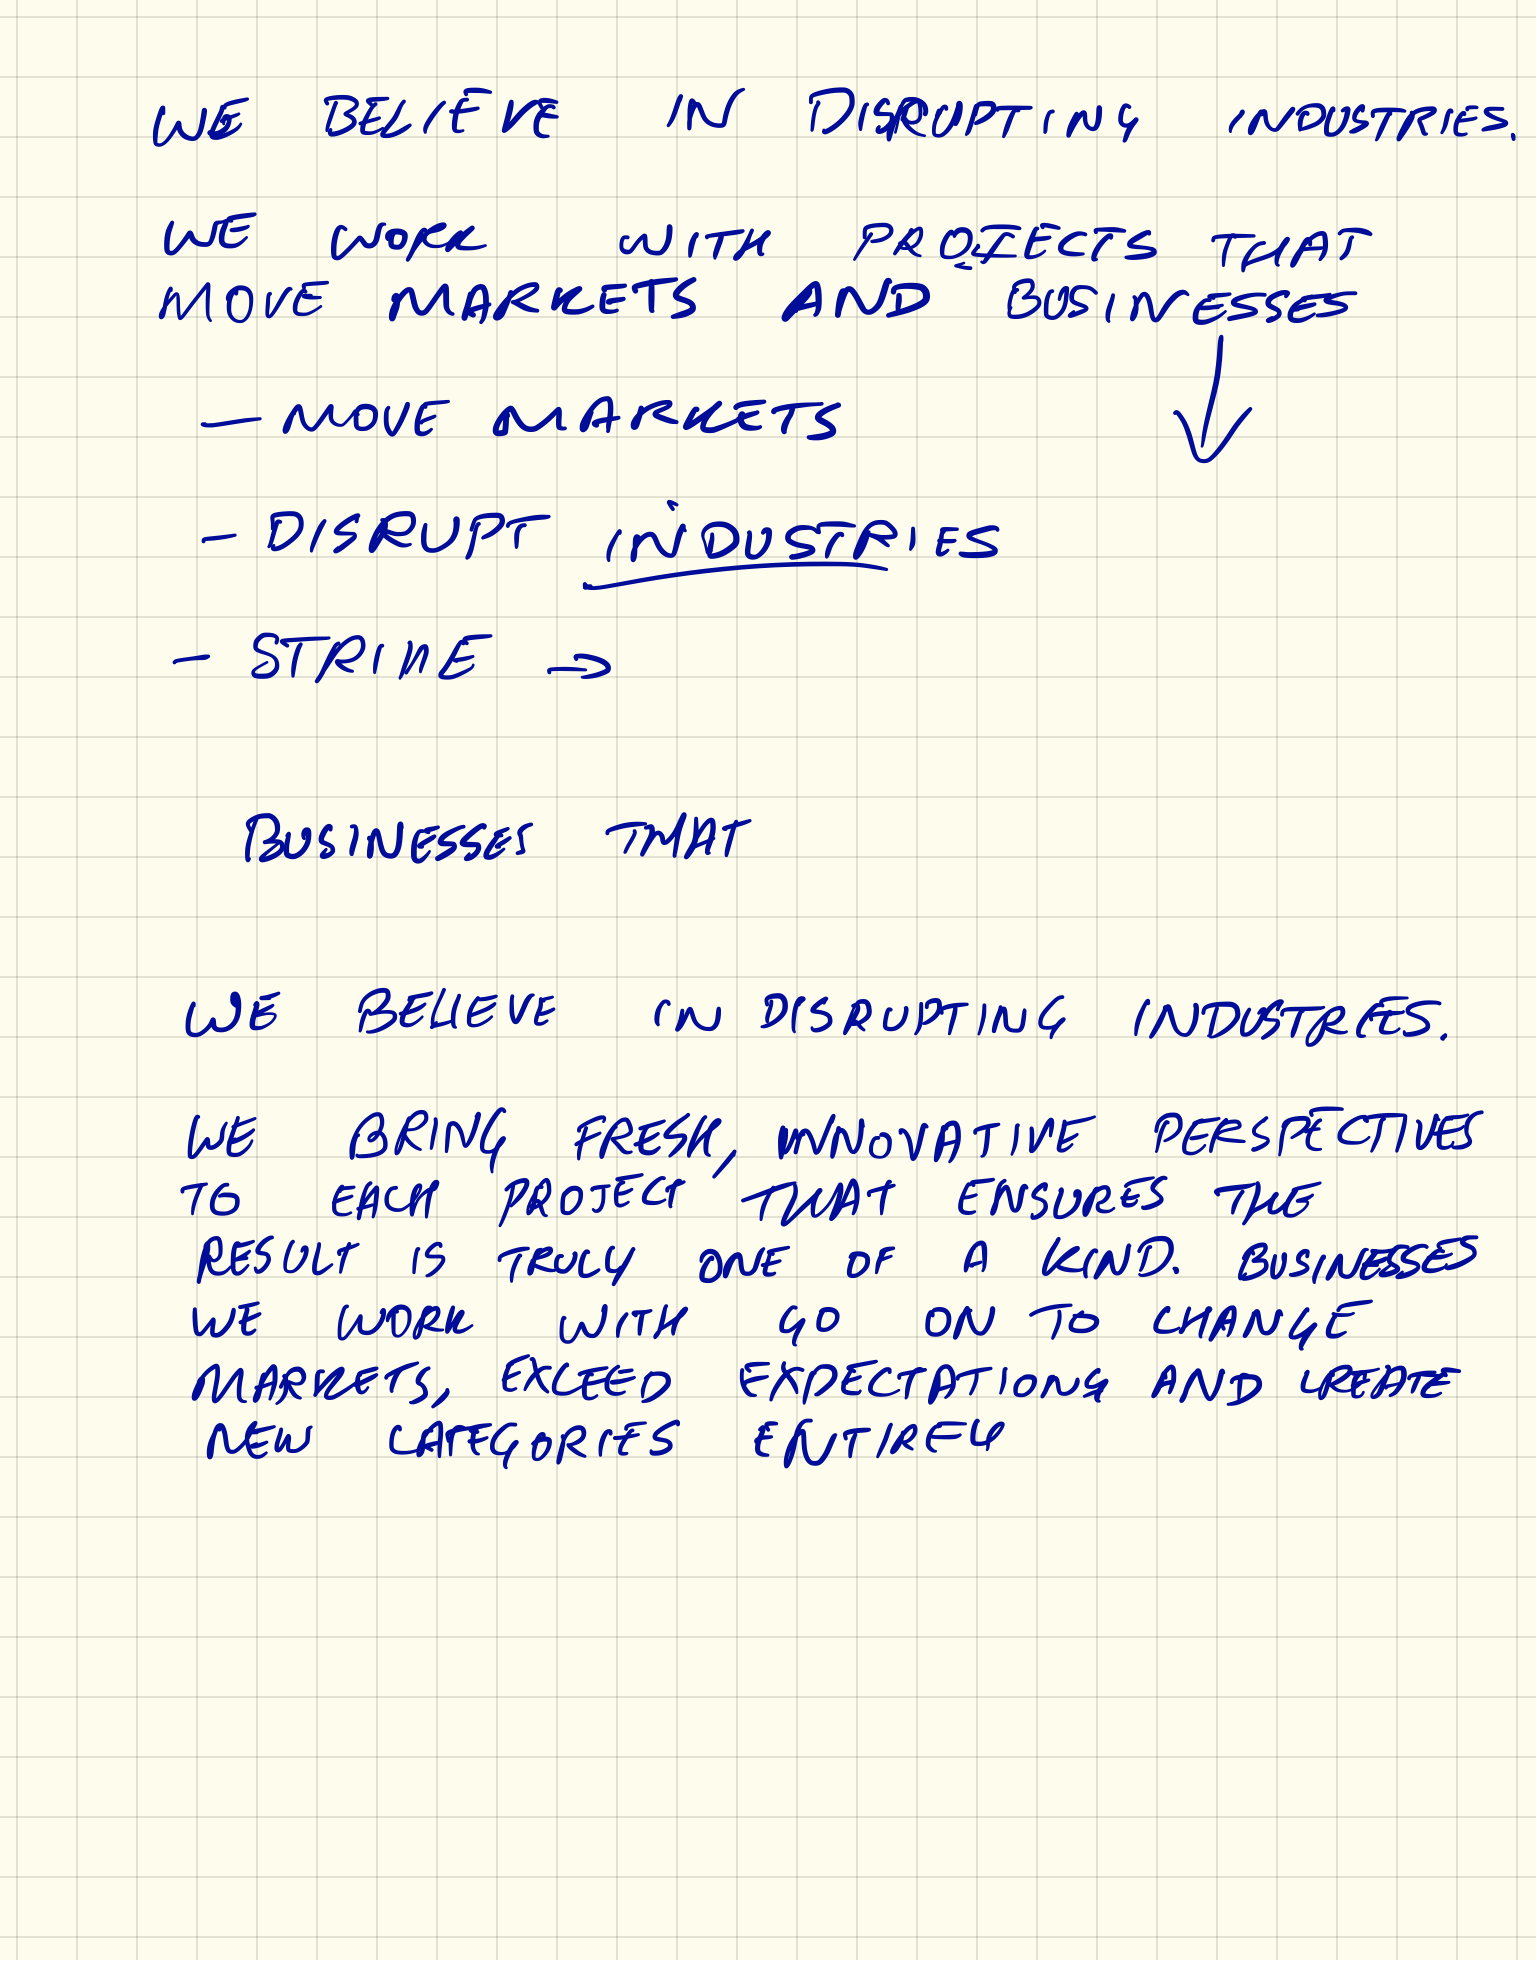 WE BELIEVE IN DISRUPTING INDUSTRIES.
WE WORK WITH PROJECTS THAT
MOVE MARKETS AND BUSINESSES
— MOVE MARKETS
- DISRUPT INDUSTRIES
- STRIKE →
BUSINESSES THAT
WE BELIEVE IN DISRUPTING INDUSTRIES.
WE BRING FRESH, INNOVATIVE PERSPECTIVES
TO EACH PROJECT THAT ENSURES THE
RESULT IS TRULY ONE OF A KIND. BUSINESSES
WE WORK WITH GO ON TO CHANGE
MARKETS, EXCEED EXPECTATIONS AND CREATE
NEW CATEGORIES ENTIREY